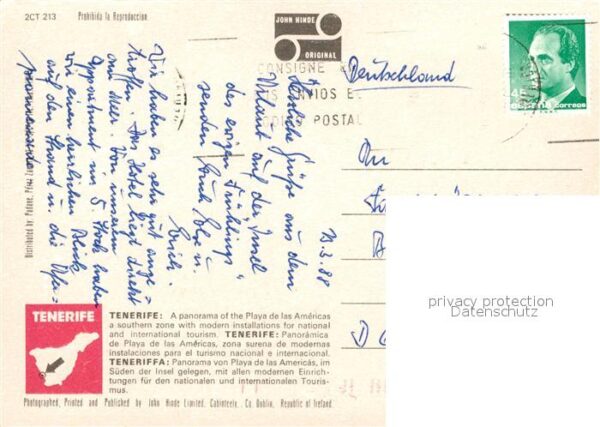 2CT 213
Prohibida la Reproduccion
JOHN HINDE
ORIGINAL
CONSIGNE
ENVIOS E
POSTAL
ESPAÑA correos
Deutschland
An
23.3.88
Herzliche Grüße aus dem
Urlaub auf der Insel
des ewigen Frühlings"
senden
Erich.
Wir haben es sehr gut ange=
troffen. Das Hotel liegt direkt
am Meer. Von unserem
Appartment im 5. Stock haben
wir einen herrlichen Blick
auf den Strand u. die Ufer=
promenade
TENERIFE
TENERIFE: A panorama of the Playa de las Américas
a southern zone with modern installations for national
and international tourism. TENERIFE: Panorámica
de Playa de las Américas, zona surena de modernas
instalaciones para el turismo nacional e internacional.
TENERIFFA: Panorama von Playa de las Americás, im
Süden der Insel gelegen, mit allen modernen Einrich-
tungen für den nationalen und internationalen Touris-
mus.
Photographed, Printed and Published by John Hinde Limited, Cabinteely, Co. Dublin, Republic of Ireland.
Distributed by:
privacy protection
Datenschutz